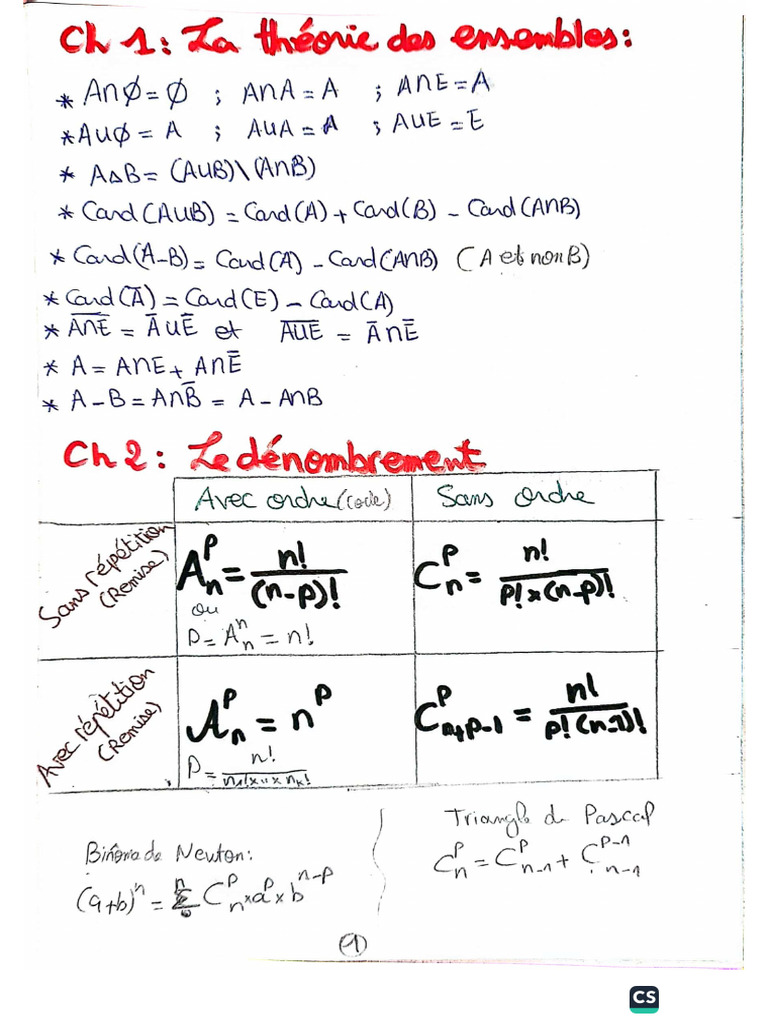 Ch 1: La théorie des ensembles:
* A∩∅ = ∅ ; A∩A = A ; A∩E = A
* A∪∅ = A ; A∪A = A ; A∪E = E
* A△B = (A∪B)\(A∩B)
* Card(A∪B) = Card(A) + Card(B) - Card(A∩B)
* Card(A-B) = Card(A) - Card(A∩B) (A et non B)
* Card(A̅) = Card(E) - Card(A)
* A̅∩̅E̅ = A̅∪E̅ et A̅∪̅E̅ = A̅∩E̅
* A = A∩E + A∩E̅
* A-B = A∩B̅ = A - A∩B
Ch 2: Le dénombrement
Avec ordre (code) Sans ordre
Sans répétition
(Remise)
A_n^p = n!/(n-p)!
ou
P = A_n^n = n!
C_n^p = n!/(p! x (n-p)!)
Avec répétition
(Remise)
A_n^p = n^p
P = n!/(n₁! x ıı x n_k!)
C_{n+p-1}^p = n!/(p! (n-1)!)
Binôme de Newton:
(a+b)^n = Σ C_n^p x a^p x b^{n-p}
Triangle de Pascal
C_n^p = C_{n-1}^p + C_{n-1}^{p-1}
(1)
CS